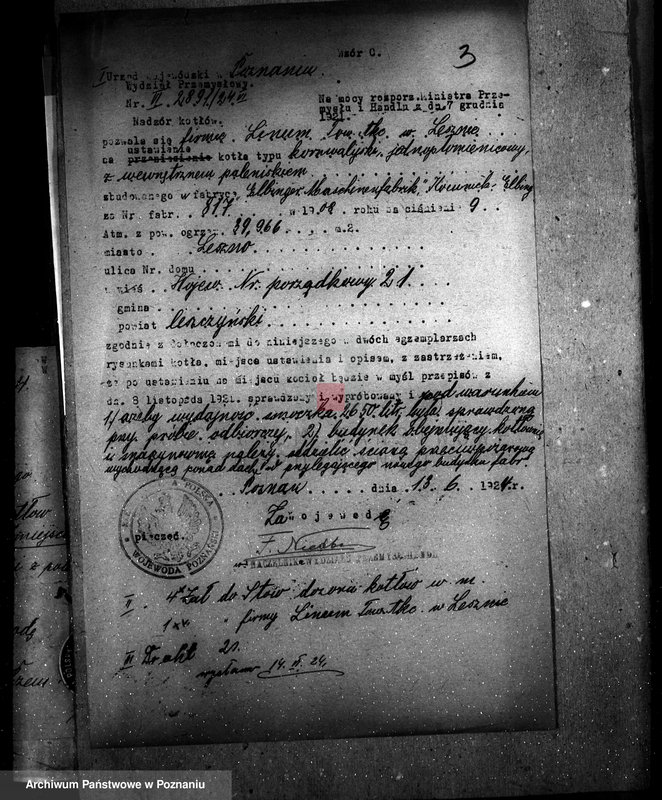 Wzór C.
3
I Urząd Wojewódzki w Poznaniu.
Wydział Przemysłowy.
Nr. III 2891/24 II
Na mocy rozporz. Ministra Prze-
mysłu i Handlu z dn. 7 grudnia
1921.
Nadzór kotłów.
pozwala się firmie "Linum" Tow. tkc. w Leszno
ustawienie
na przeniesienie kotła typu kornwalijski, jednopłomienicowy,
z wewnętrznem paleniskiem
zbudowanego w fabryce "Elbinger Maschinenfabrik" Elbing
za Nr. fabr. 817 w 1908 roku na ciśnienie 9
Atm. z pow. ogrzew. 39,966 m.2.
miasto Leszno
ulica Nr. domu
Nr. porządkowy 21
gmina
powiat leszczyński
zgodnie z dołączonemi do niniejszego w dwóch egzemplarzach
rysunkami kotła, miejsca ustawienia i opisem, z zastrzeżeniem,
że po ustawieniu na miejscu kocioł będzie w myśl przepisów z
dn. 8 listopada 1921. sprawdzony i wypróbowany i pod warunkiem
1) ażeby wydajność smoczka 2650 litr. była sprawdzona
przy próbie odbiorczej, 2) budynek obejmujący kotłownię
i maszynownię należy oddzielić ścianą przeciwogniową
wychodzącą ponad dach od przylegającego nowego budynku fabr.
Poznań dnia 13. 6. 1924 r.
Za Wojewodę
pieczęć.
A POLSKA
WOJEWODA POZNAŃSKI
NACZELNIK WYDZIAŁU PRZEMYSŁ. HANDL.
II 4 Zał do Stow dozoru kotłów w m.
1 " firmy Linum Tow. tkc. w Lesznie
III Do akt
wysłano 14. VI. 24.
Archiwum Państwowe w Poznaniu